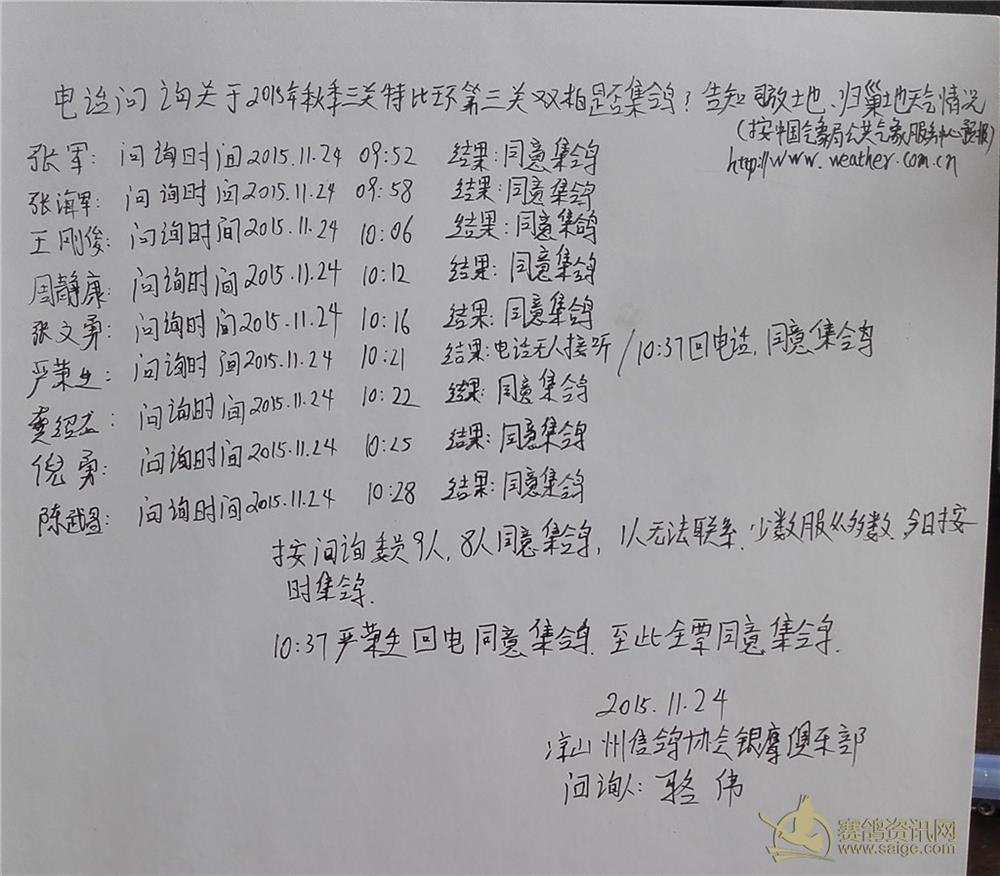 电话问询关于2015年秋季三关特比环第三关双柏是否集鸽？告知司放地、归巢地天气情况
（按中国气象局公共气象服务中心预报）
http://www.weather.com.cn
张军：问询时间2015.11.24 09:52 结果：同意集鸽
张海军：问询时间2015.11.24 09:58 结果：同意集鸽
王刚俊：问询时间2015.11.24 10:06 结果：同意集鸽
周静康：问询时间2015.11.24 10:12 结果：同意集鸽
张文勇：问询时间2015.11.24 10:16 结果：同意集鸽
严荣生：问询时间2015.11.24 10:21 结果：电话无人接听/10:37回电话，同意集鸽
龚绍：问询时间2015.11.24 10:22 结果：同意集鸽
倪勇：问询时间2015.11.24 10:25 结果：同意集鸽
陈武昌：问询时间2015.11.24 10:28 结果：同意集鸽
按问询委员9人，8人同意集鸽，1人无法联系．少数服从多数．今日按
时集鸽．
10:37严荣生回电同意集鸽．至此全票同意集鸽．
2015.11.24
凉山州信鸽协会银摩俱乐部
问询人：骆伟
赛鸽资讯网
www.saige.com